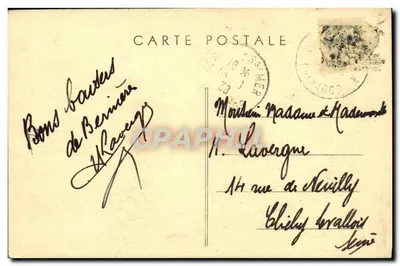 CARTE POSTALE
Bons baisers
de Bernières
Monsieur Madame & Mademoiselle
H. Lavergne
14 rue de Neuilly
Clichy Levallois
Seine